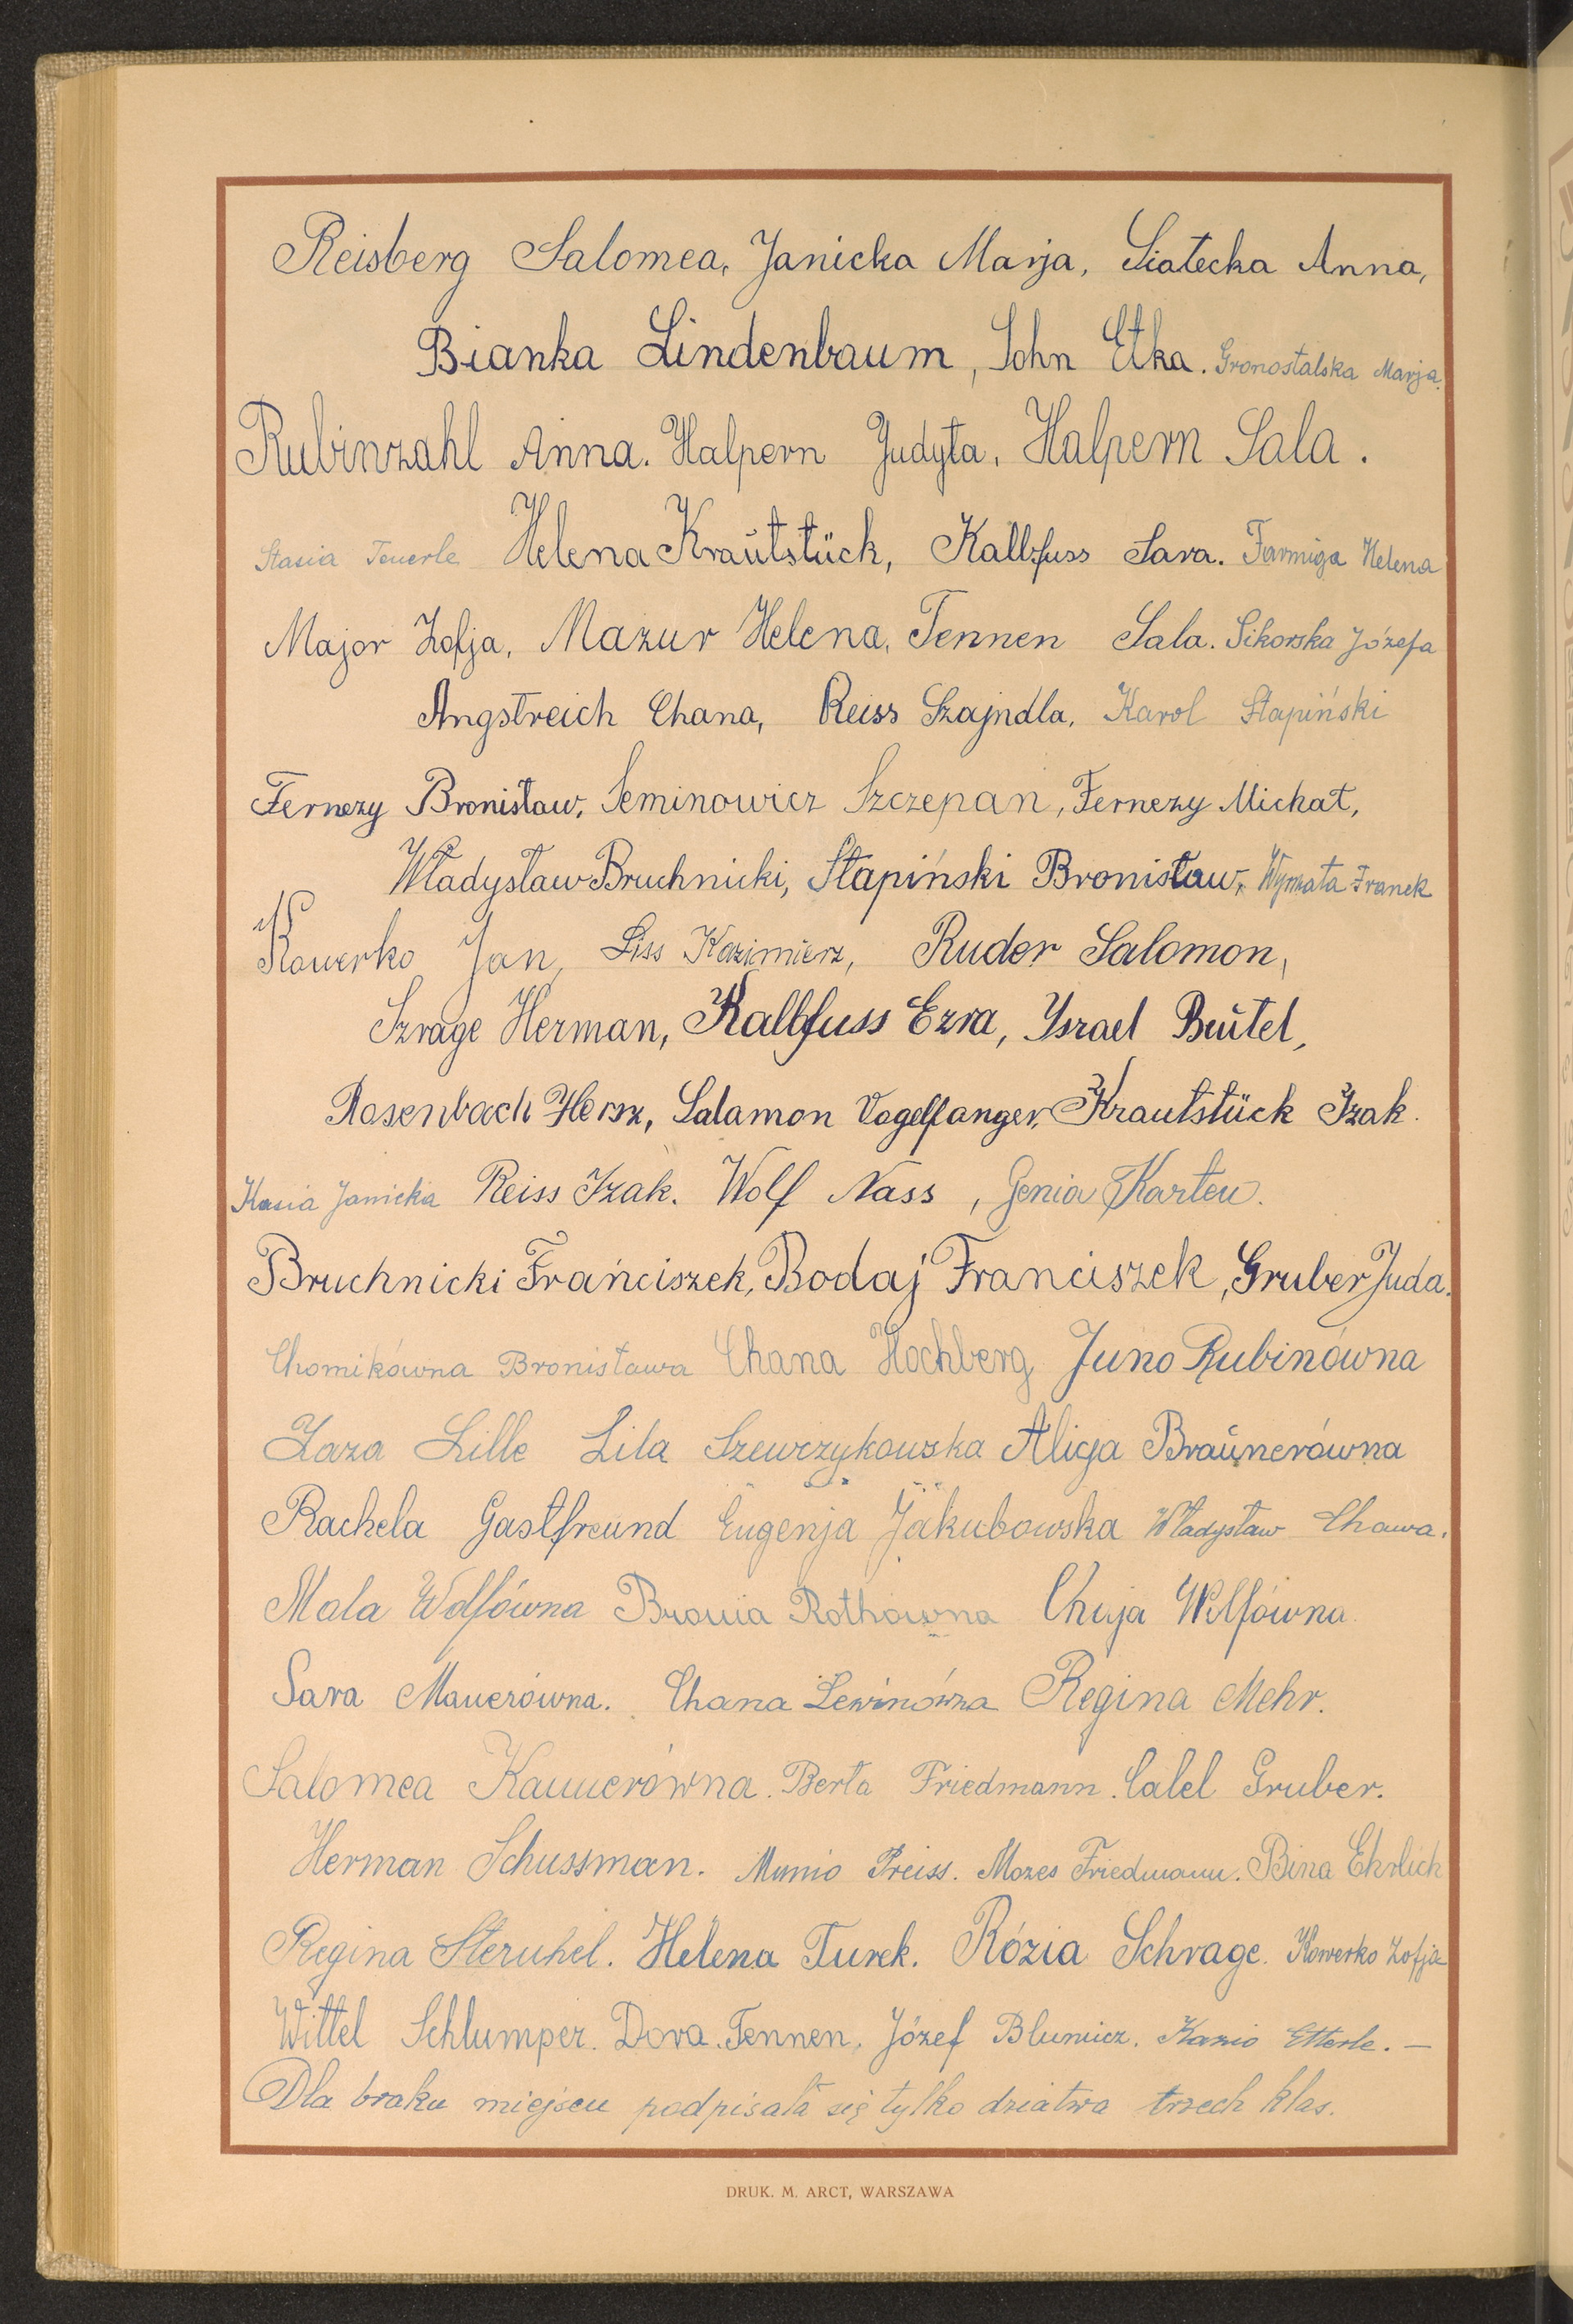 Reisberg Salomea, Janicka Marja, Siatecka Anna,
Bianka Lindenbaum, Sohn Etka. Gronostalska Marja.
Rubinzahl Anna. Halpern Judyta, Halpern Sala.
Stasia Teuerle Helena Krautstück, Kalbfuss Sara. Farmiga Helena
Major Zofja, Mazur Helena, Tennen Sala. Sikorska Józefa
Angstreich Chana, Reiss Szajndla, Karol Stapiński
Fernezy Bronisław, Seminowicz Szczepan, Fernezy Michał,
Władysław Bruchnicki, Stapiński Bronisław, Franek
Kowerko Jan, Liss Kazimierz, Ruder Salomon,
Szrage Herman, Kalbfuss Ezra, Ysrael Beutel,
Rosenbach Hersz, Salamon Vogelfanger, Krautstück Izak.
Kasia Janicka Reiss Izak. Wolf Nass, Genia Karten.
Bruchnicki Franciszek, Bodaj Franciszek, Gruber Juda.
Chomikówna Bronisława Chana Hochberg Juno Rubinówna
Zaza Lille Lila Szewczykowska Alicja Braunerówna
Rachela Gastfreund Eugenja Jakubowska Władysław Chawa.
Mala Wolfówna Bronia Rothówna Chaja Wolfówna
Sara Mauerówna. Chana Lewinówna Regina Mehr.
Salomea Berta Friedmann. Calel Gruber.
Herman Schussman. Munio Preiss. Mozes Friedmann. Bina Ehrlich
Regina Helena Turek. Rózia Schrage. Kowerko Zofja
Wittel Schlumper. Dora Tennen, Józef Kazio Etterle. —
Dla braku miejsca podpisała się tylko dziatwa trzech klas.
DRUK. M. ARCT, WARSZAWA